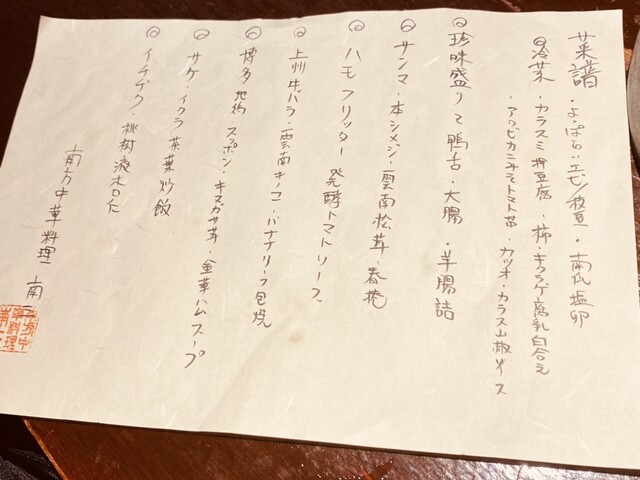 菜譜 ・よっぱらいエビ/枝豆・南瓜塩卵
◎冷菜・カラスミ押豆腐・柿・キクラゲ腐乳白合え
・アワビカニみそトマト苗・カツオ・カラス山椒ソース
◎珍味盛りて鴨舌・大腸・羊腸詰
◎サンマ・本シメジ・雲南松茸・春捲
◎ハモフリッター 発酵トマトソース
◎上州牛バラ・雲南キノコ・バナナリーフ包焼
◎博多地鶏・スッポン・キヌガサ茸・金華ハムスープ
◎サケ・イクラ 茶葉炒飯
◎イチヂク・桃樹液ホロ仁
南方中華料理 南三
南方中
華料理